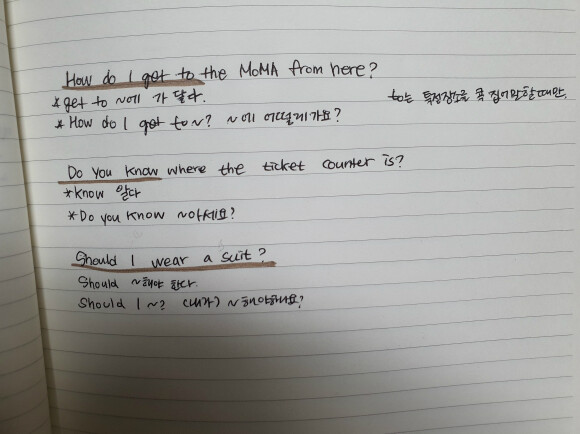 How do I get to the MoMA from here?
*get to ~에 가 닿다.
to는 특정장소를 콕 집어말할때만.
*How do I get to ~? ~에 어떻게가요?
Do you know where the ticket counter is?
*know 알다
*Do you know ~아세요?
Should I wear a suit?
Should ~해야 한다.
Should I ~? (내가) ~해야하나요?